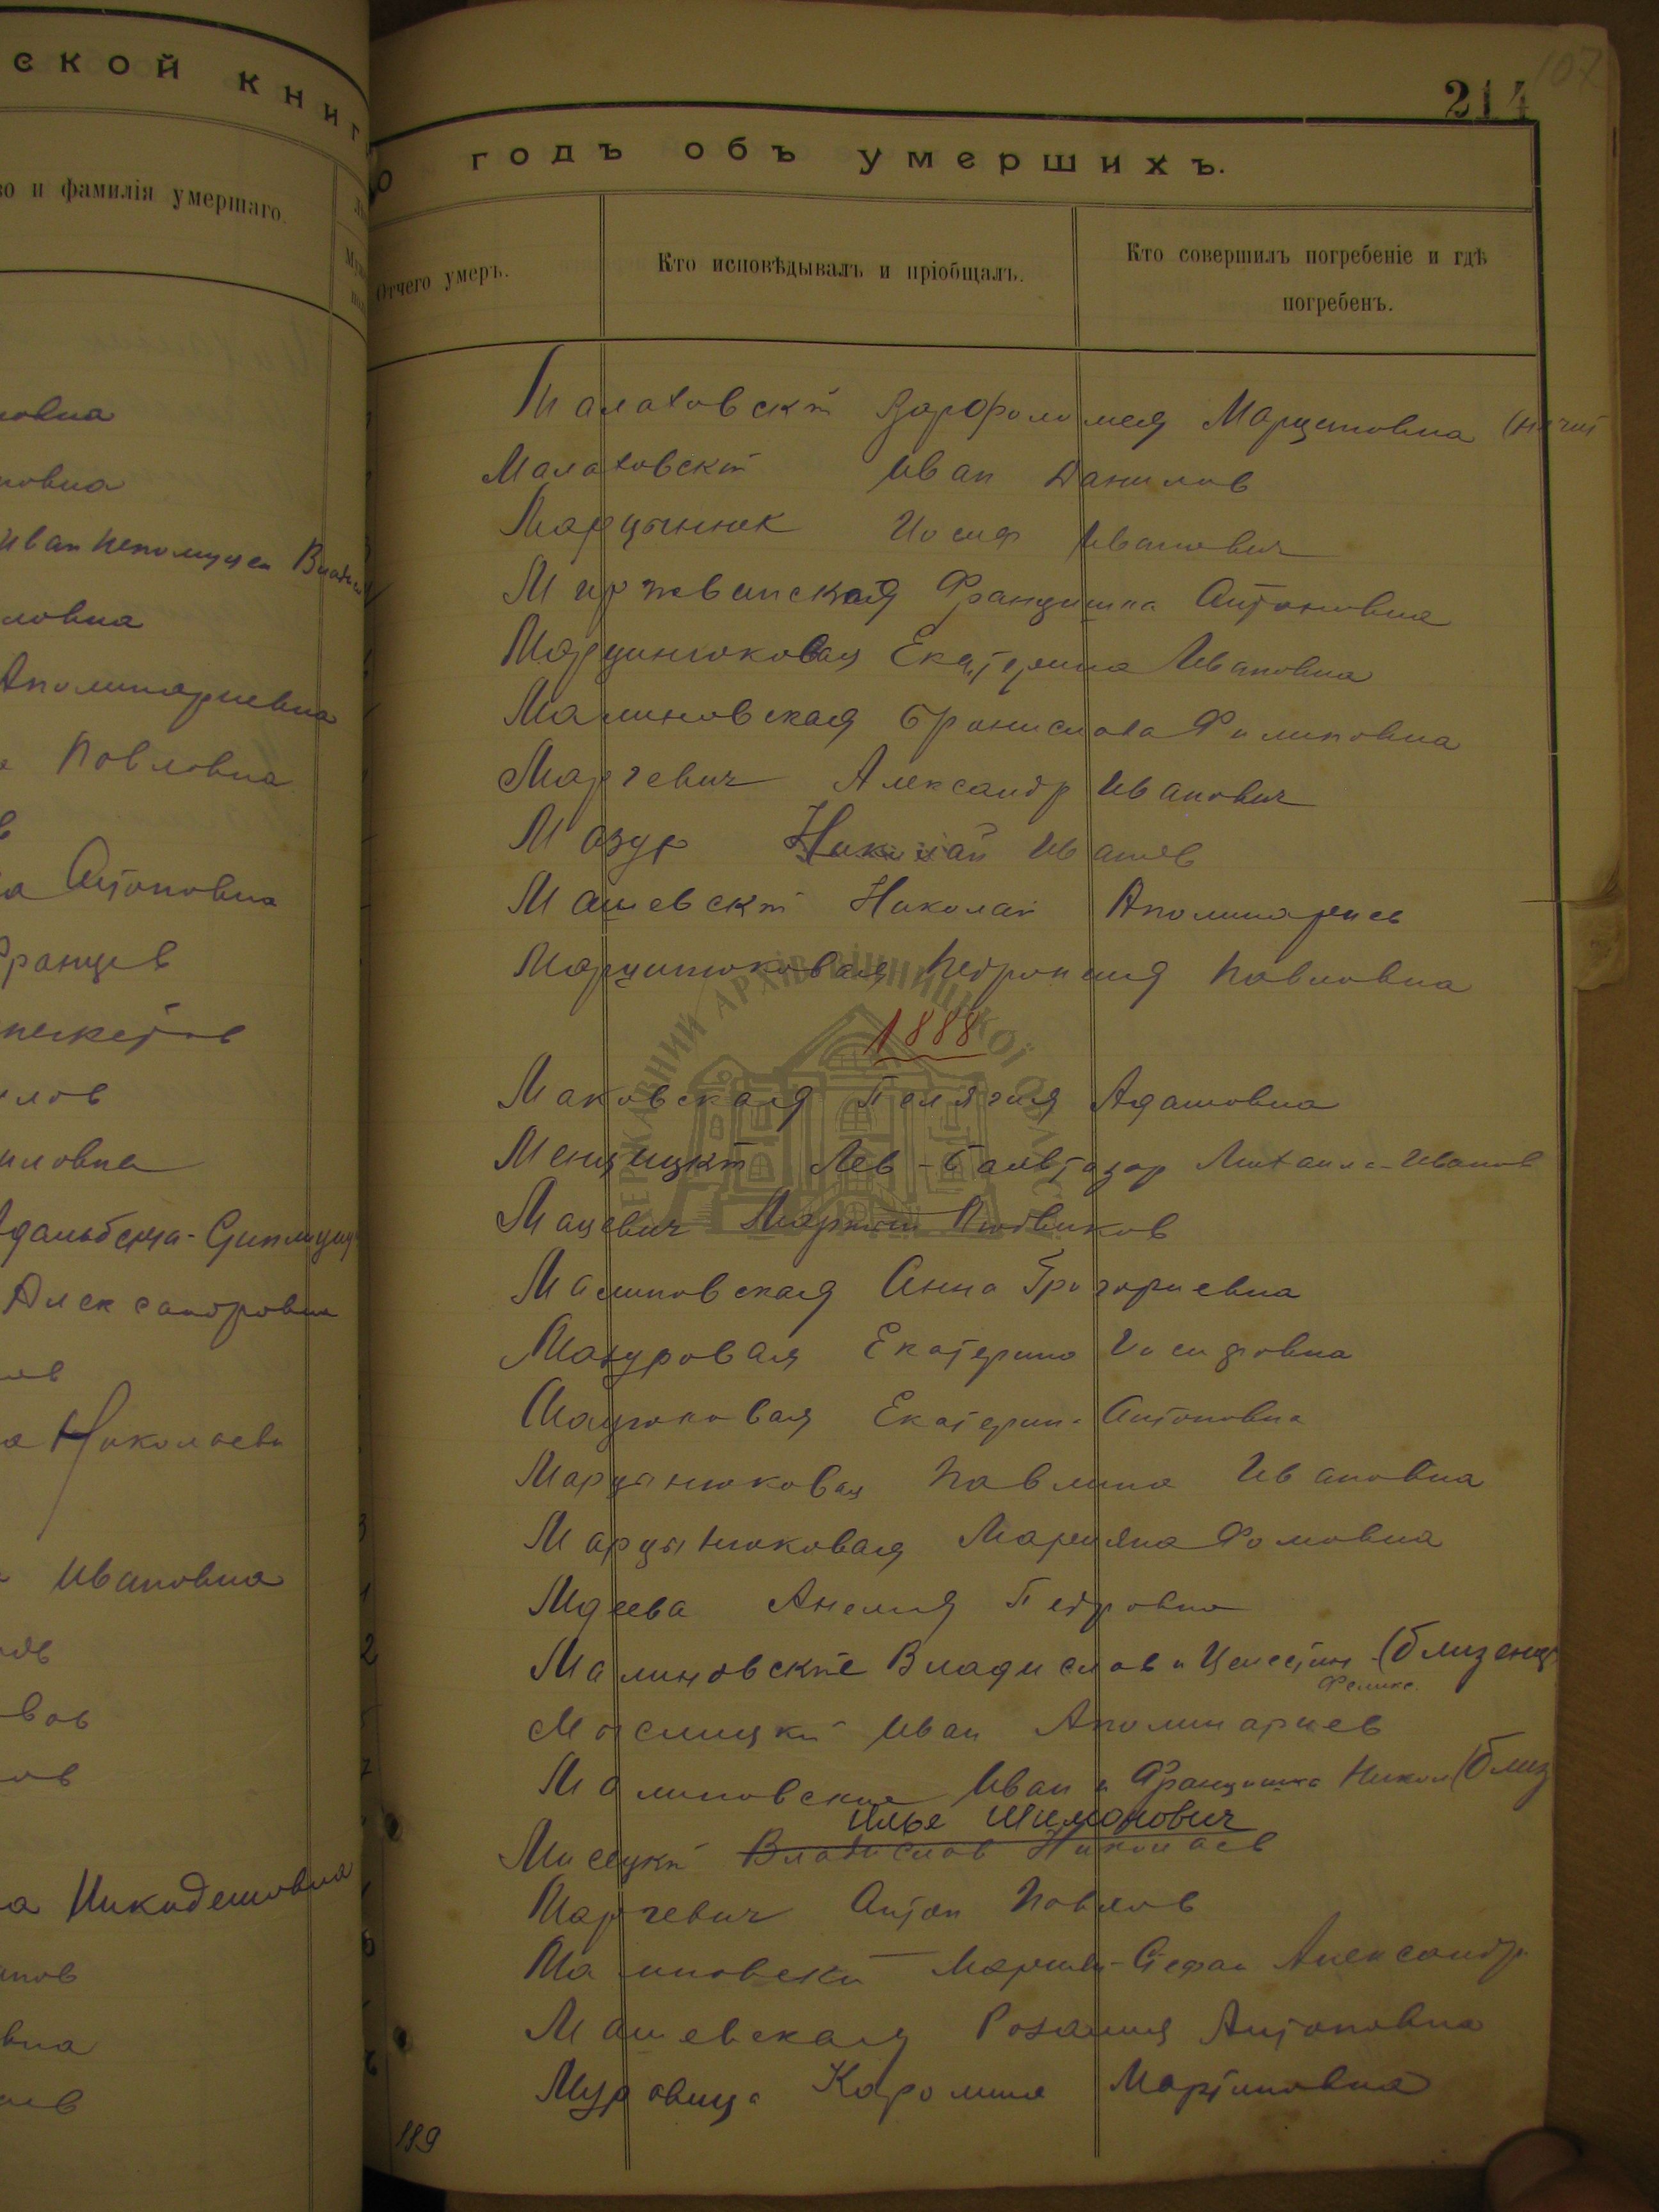 ской книг
во и фамилія умершаго.
овна
овна
Иван Непомуцен
ловна
Аполинариевна
Павловна
а Антоновна
Францев
лов
иловна
Александровна
а Николаевн
Ивановна
ов
а Никодемовна
овна
214
107
годъ объ умершихъ.
Отчего умеръ.
Кто исповѣдывалъ и пріобщалъ.
Кто совершилъ погребеніе и гдѣ
погребенъ.
Малаховскій Варфоломея Марциновна
Малаховскій Иван Данилов
Марцынюк Иосиф Иванович
Мержвинская Францишка Антоновна
Марцинюковая Екатерина Ивановна
Малиновская Бронислава Филиповна
Марчевич Александр Иванович
Мазур Николай Иванов
Машевскій Николай Аполинариев
Марцинюковая Петронеля Павловна
1888
Маковская Пелагия Адамовна
Лев-Балтазар Михаила-Иванов
Мацевич Мартин Людвиков
Малиновская Анна Григориевна
Мазуровая Екатерина Иосифовна
Мацюковая Екатерин. Антоновна
Марцынюковая Павлина Ивановна
Марцынюковая Марияна Фомовна
Анеля Петровна
Малиновскіе Владислав и Целестин (близнец
Феликс.
Мыслицкій Иван Аполинариев
Малиновские Иван и Францишка Никол (близ
Илье Шимонович
Мисецкій Владислав Николаев
Марчевич Антон Павлов
Малиновскій Мариан-Стефан Александр
Машевская Розалия Антоновна
Каролина Мартиновна
189
ДЕРЖАВНИЙ АРХІВ ВІННИЦЬКОЇ ОБЛАСТІ